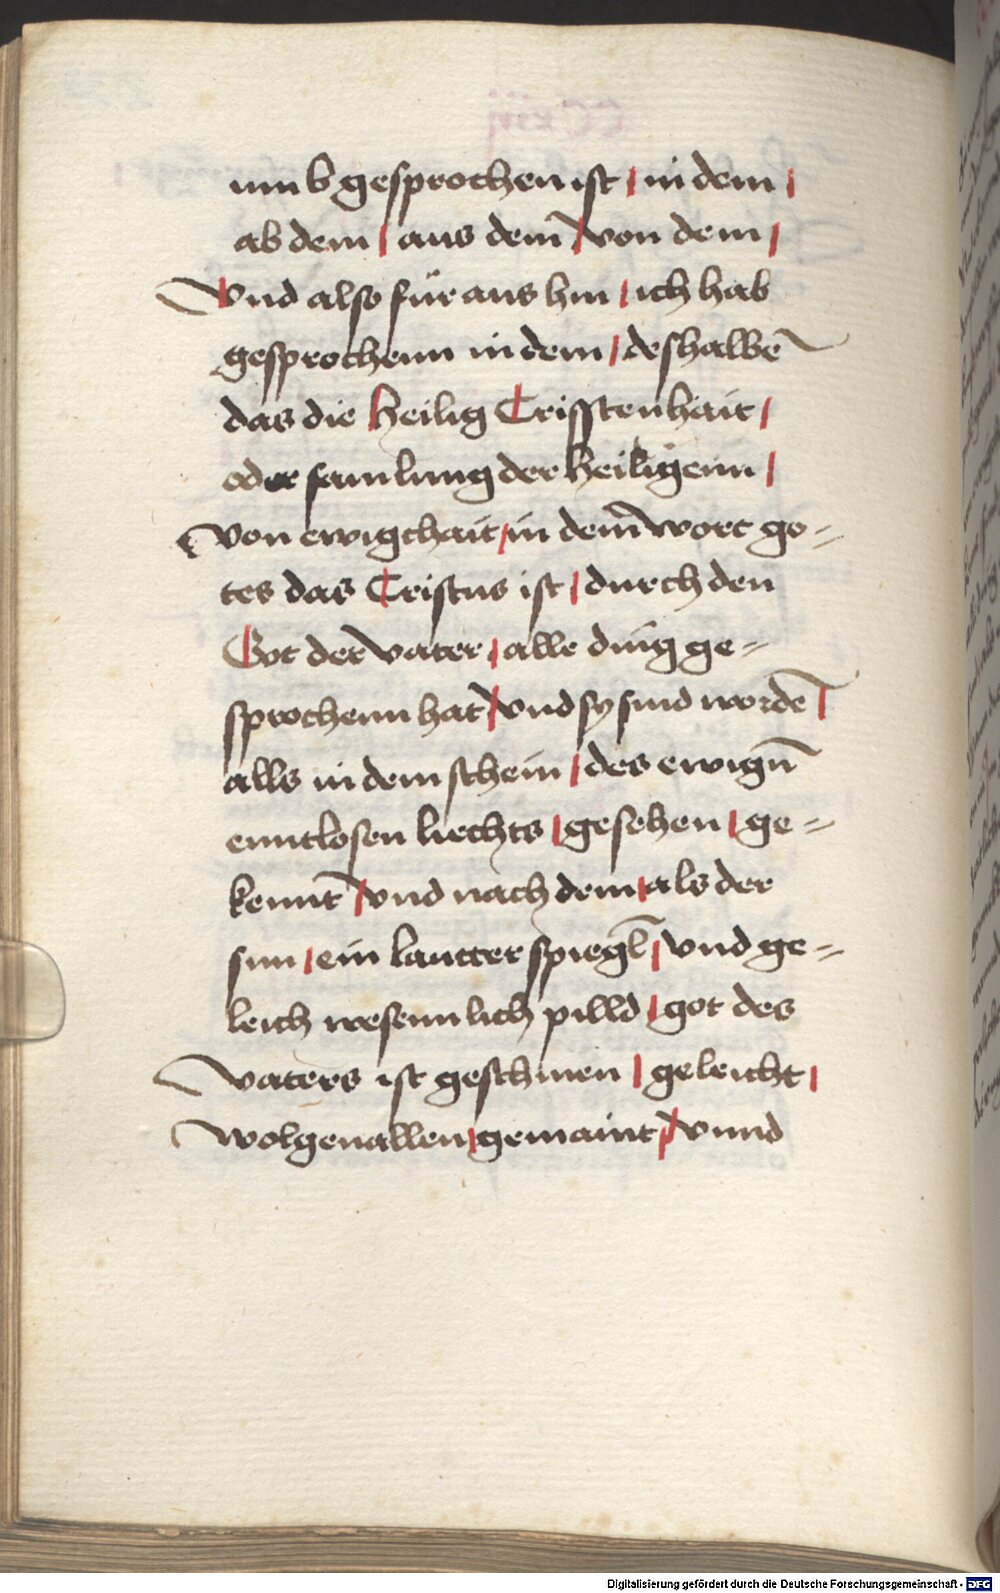 umb gesprochen ist / in dem /
ab dem / aus dem / von dem /
Vnd also für aus hin / ich hab
gesprochenn in dem / deshalbē
das die heilig Crisstenhait /
oder samlung der heiligenn /
von ewigchait / in dem wort go-
tes das Cristus ist / durch den
Got der vater / alle ding ge-
sprochenn hat / vnd sy sind wordē /
alls in dem schein / des ewign̄
enntlosen liechts / gesehen / ge-
kennt / vnd nach dem / als der
sun / ein lautter spiegl / vnd ge-
leich wesennlich pilld / got des
vaters ist geschinen / geleicht /
wolgeuallen / gemaint / vnnd
Digitalisierung gefördert durch die Deutsche Forschungsgemeinschaft - DFG